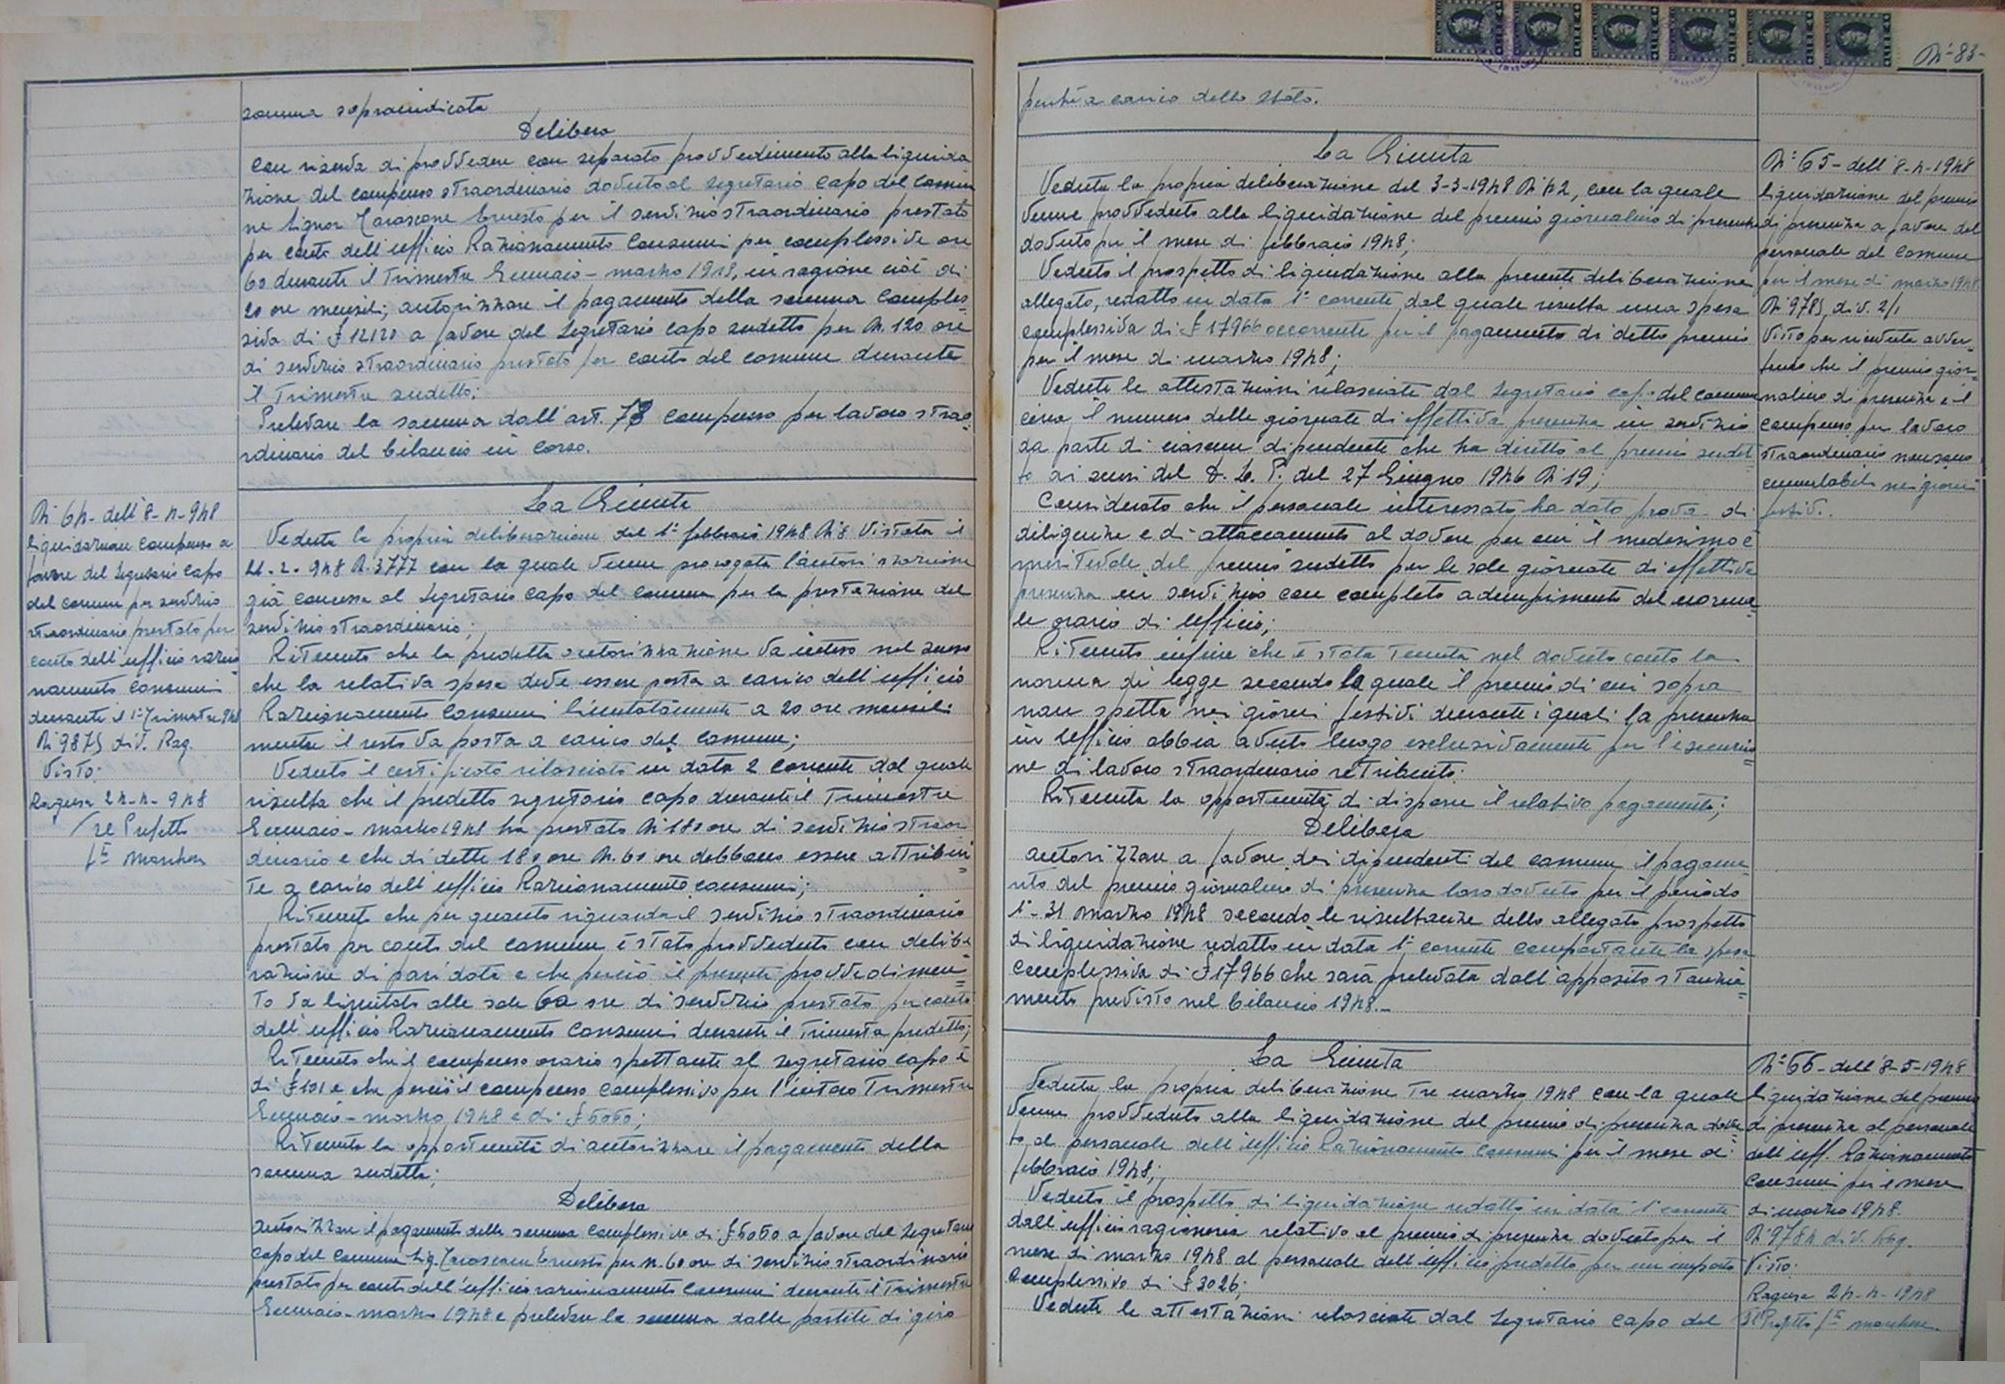 somma sopraindicata
Delibera
con riserva di provvedere con separato provvedimento alla liquida
zione del compenso straordinario dovuto al segretario capo del comu
ne signor Tarascone Ernesto per il servizio straordinario prestato
per conto dell'ufficio Razionamento Consumi per complessive ore
60 durante il trimestre Gennaio-marzo 1948, in ragione cioè di
20 ore mensili; autorizzare il pagamento della somma comples-
siva di £ 12120 a favore del segretario capo sudetto per N. 120 ore
di servizio straordinario prestato per conto del comune durante
il Trimestre sudetto.
Prelevare la somma dall'art. 78 compenso per lavoro strao
rdinario del bilancio in corso.
N. 64- dell'8-4-948
liquidazione compenso a
favore del segretario capo
del comune per servizio
straordinario prestato per
conto dell'ufficio razio
namento consumi
durante il 1° Trimestre 948
N. 9875 div. Rag.
Visto:
Ragusa 24-4-948
Il Prefetto
f.to
La Giunta
Veduta la propria deliberazione del 1° febbraio 1948 N. 8 Vistata il
21-2-948 N. 3777 con la quale venne prorogata l'autorizzazione
già concessa al segretario capo del comune per la prestazione del
servizio straordinario;
Ritenuto che la predetta autorizzazione va intesa nel senso
che la relativa spesa deve essere posta a carico dell'ufficio
Razionamento Consumi limitatamente a 20 ore mensili
mentre il resto va posto a carico del comune;
Veduto il certificato rilasciato in data 2 corrente dal quale
risulta che il predetto segretario capo durante il Trimestre
Gennaio-marzo 1948 ha prestato N. 180 ore di servizio straor
dinario e che di dette 180 ore N. 60 ore debbano essere attribui=
te a carico dell'ufficio Razionamento consumi;
Ritenuto che per quanto riguarda il servizio straordinario
prestato per conto del comune è stato provveduto con delibe
razione di pari data e che perciò il presente provvedimen=
to va limitato alle sole 60 ore di servizio prestato per conto
dell'ufficio Razionamento Consumi durante il Trimestre predetto;
Ritenuto che il compenso orario spettante al segretario capo è
di £ 101 e che perciò il compenso complessivo per l'intero Trimestre
Gennaio-marzo 1948 è di £ 6060;
Ritenuta la opportunità di autorizzare il pagamento della
somma sudetta;
Delibera
autorizzare il pagamento della somma complessiva di £ 6060 a favore del segretario
capo del comune Sig. Tarascone Ernesto per n. 60 ore di servizio straordinario
prestato per conto dell'ufficio razionamento Consumi durante il Trimestre
Gennaio-marzo 1948 e prelevare la somma dalle partite di giro
N° 83-
perchè a carico dello Stato.
La Giunta
Veduta la propria deliberazione del 3-3-1948 N. 42, con la quale
venne provveduto alla liquidazione del premio giornaliero di presenza
dovuto per il mese di febbraio 1948;
Veduto il prospetto di liquidazione alla presente deliberazione
allegato, redatto in data 1° corrente, dal quale risulta una spesa
complessiva di £ 17966 occorrente per il pagamento di detto premio
per il mese di marzo 1948;
Vedute le attestazioni rilasciate dal segretario capo del comune
circa il numero delle giornate di effettiva presenza in servizio
da parte di ciascun dipendente che ha diritto al premio sudet-
to ai sensi del D. L. P. del 27 Giugno 1946 N. 19;
Considerato che il personale interessato ha dato prova di
diligenza e di attaccamento al dovere per cui il medesimo è
meritevole del premio sudetto per le sole giornate di effettiva
presenza in servizio con completo adempimento del norma
le orario di ufficio;
Ritenuto infine che è stata tenuta nel dovuto conto la
norma di legge secondo la quale il premio di cui sopra
non spetta nei giorni festivi durante i quali la presenza
in ufficio abbia avuto luogo esclusivamente per l'esecuzio
ne di lavoro straordinario retribuito.
Ritenuta la opportunità di disporre il relativo pagamento;
Delibera
autorizzare a favore dei dipendenti del comune il pagame
nto del premio giornaliero di presenza loro dovuto per il periodo
1°-31 marzo 1948 secondo le risultanze dello allegato prospetto
di liquidazione redatto in data 1° corrente comportante la spesa
complessiva di £ 17966 che sarà prelevata dall'apposito stanzia=
mento previsto nel bilancio 1948.-
N° 65- dell'8-4-1948
liquidazione del premio
di presenza a favore del
personale del comune
per il mese di marzo 1948
N. 9785 div. 2/1
Visto per ricevuta avver-
tendo che il premio gior-
naliero di presenza e il
compenso per lavoro
straordinario non sono
cumulabili nei giorni
festivi.
La Giunta
Veduta la propria deliberazione tre marzo 1948 con la quale
venne provveduto alla liquidazione del premio di presenza dovu
to al personale dell'ufficio Razionamento Consumi per il mese di
febbraio 1948;
Veduto il prospetto di liquidazione redatto in data 1° corrente
dall'ufficio ragioneria relativo al premio di presenza dovuto per il
mese di marzo 1948 al personale dell'ufficio predetto per un importo
complessivo di £ 3026;
Vedute le attestazioni rilasciate dal segretario capo del
N° 66- dell'8-5-1948
liquidazione del premio
di presenza al personale
dell'uff. Razionamento
Consumi per il mese
di marzo 1948.
N. 9784 div. Rag.
Visto:
Ragusa 24-4-1948
Il Prefetto f.to